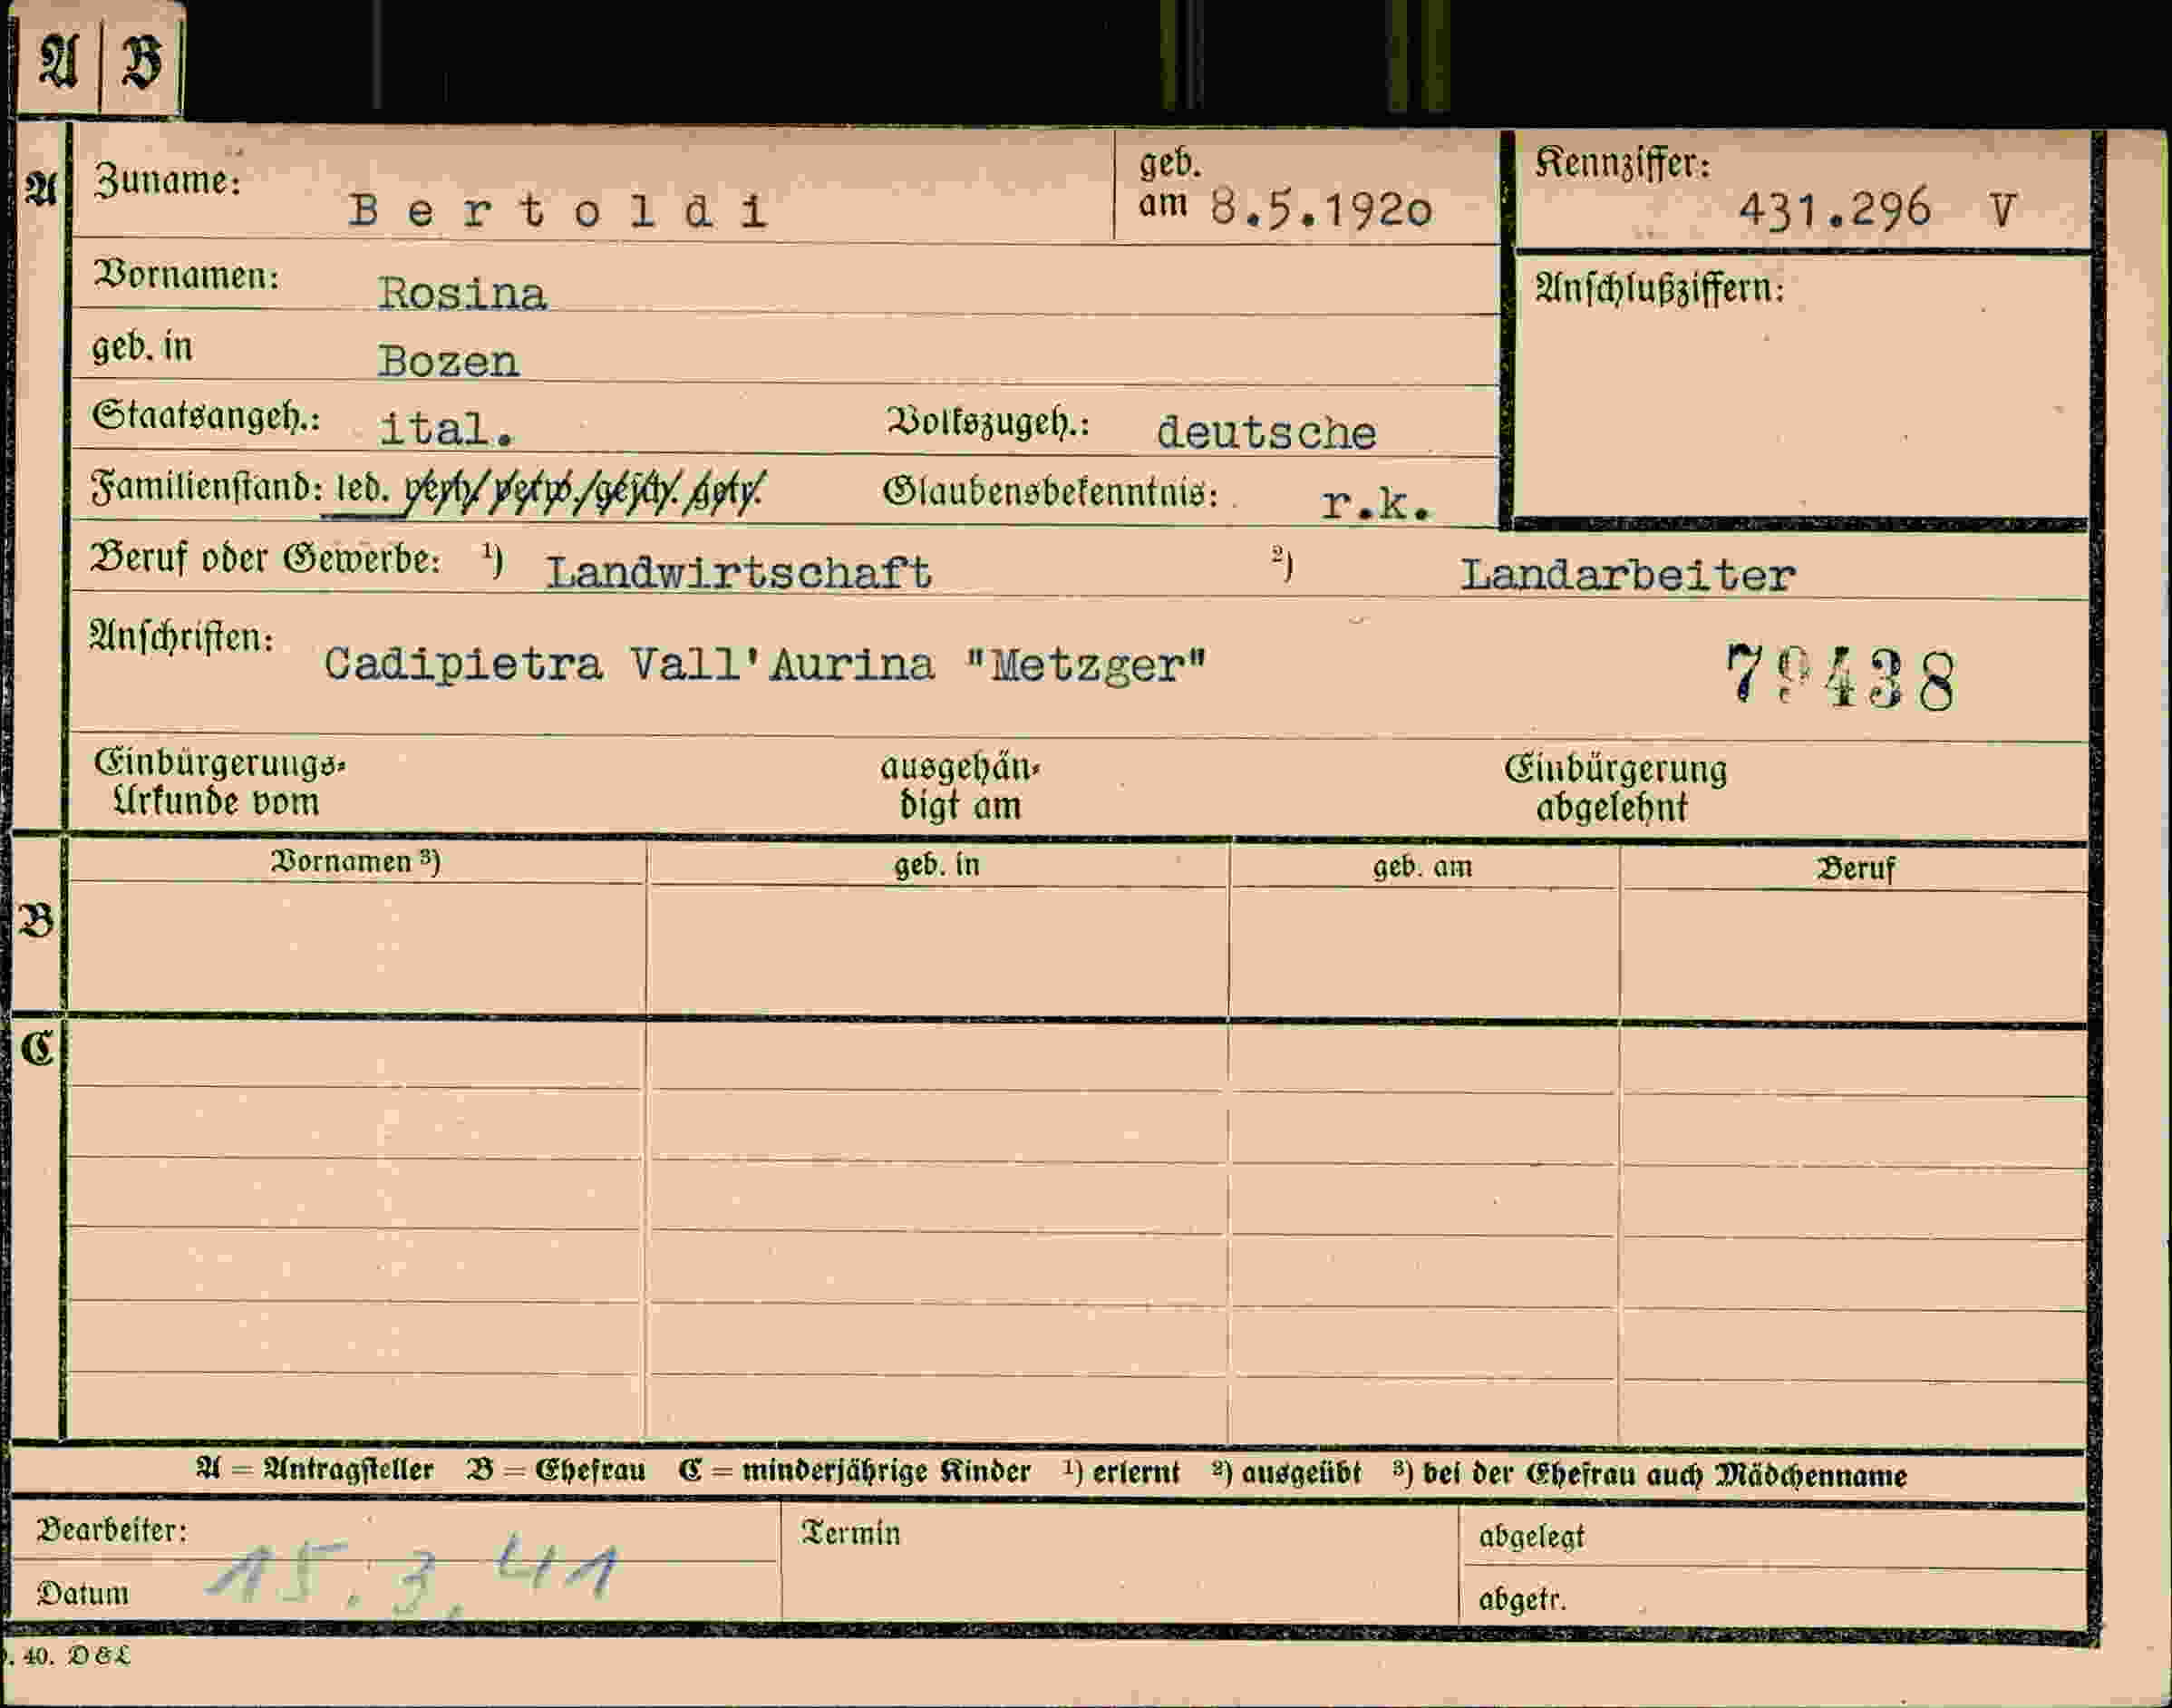 A B
A Zuname: Bertoldi geb. am 8.5.1920 Kennziffer: 431.296 V
Vornamen: Rosina Anschlußziffern:
geb. in Bozen
Staatsangeh.: ital. Volkszugeh.: deutsche
Familienstand: led. verh./verw./gesch./getr. Glaubensbekenntnis: r.k.
Beruf oder Gewerbe: ¹) Landwirtschaft ²) Landarbeiter
Anschriften: Cadipietra Vall'Aurina "Metzger" 79438
Einbürgerungs- ausgehän- Einbürgerung
Urkunde vom digt am abgelehnt
Vornamen ³) geb. in geb. am Beruf
B
C
A = Antragsteller B = Ehefrau C = minderjährige Kinder ¹) erlernt ²) ausgeübt ³) bei der Ehefrau auch Mädchenname
Bearbeiter: Termin abgelegt
Datum 15.3.41 abgetr.
. 40. D&L